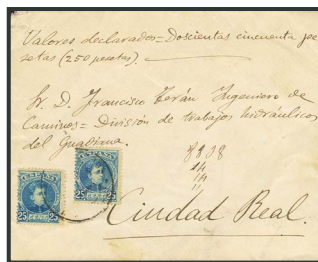 Valores declarados = Doscientas cincuenta pe
setas (250 pesetas).
Sr. D. Francisco Terán Ingeniero de
Caminos = División de trabajos hidráulicos
del Guadiana.
8838
14
14
11
Ciudad Real.
25 CENT. 25
25 CENT. 25